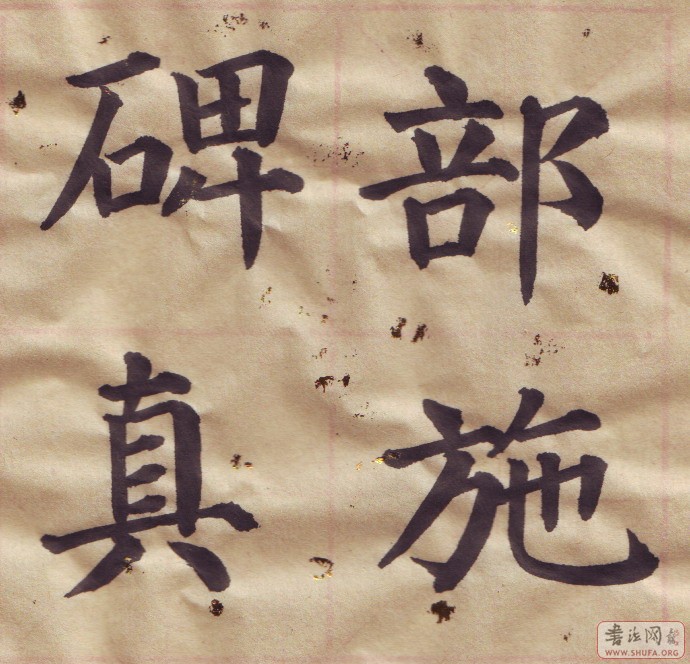 部施
碑真
书法网
WWW.SHUFA.ORG